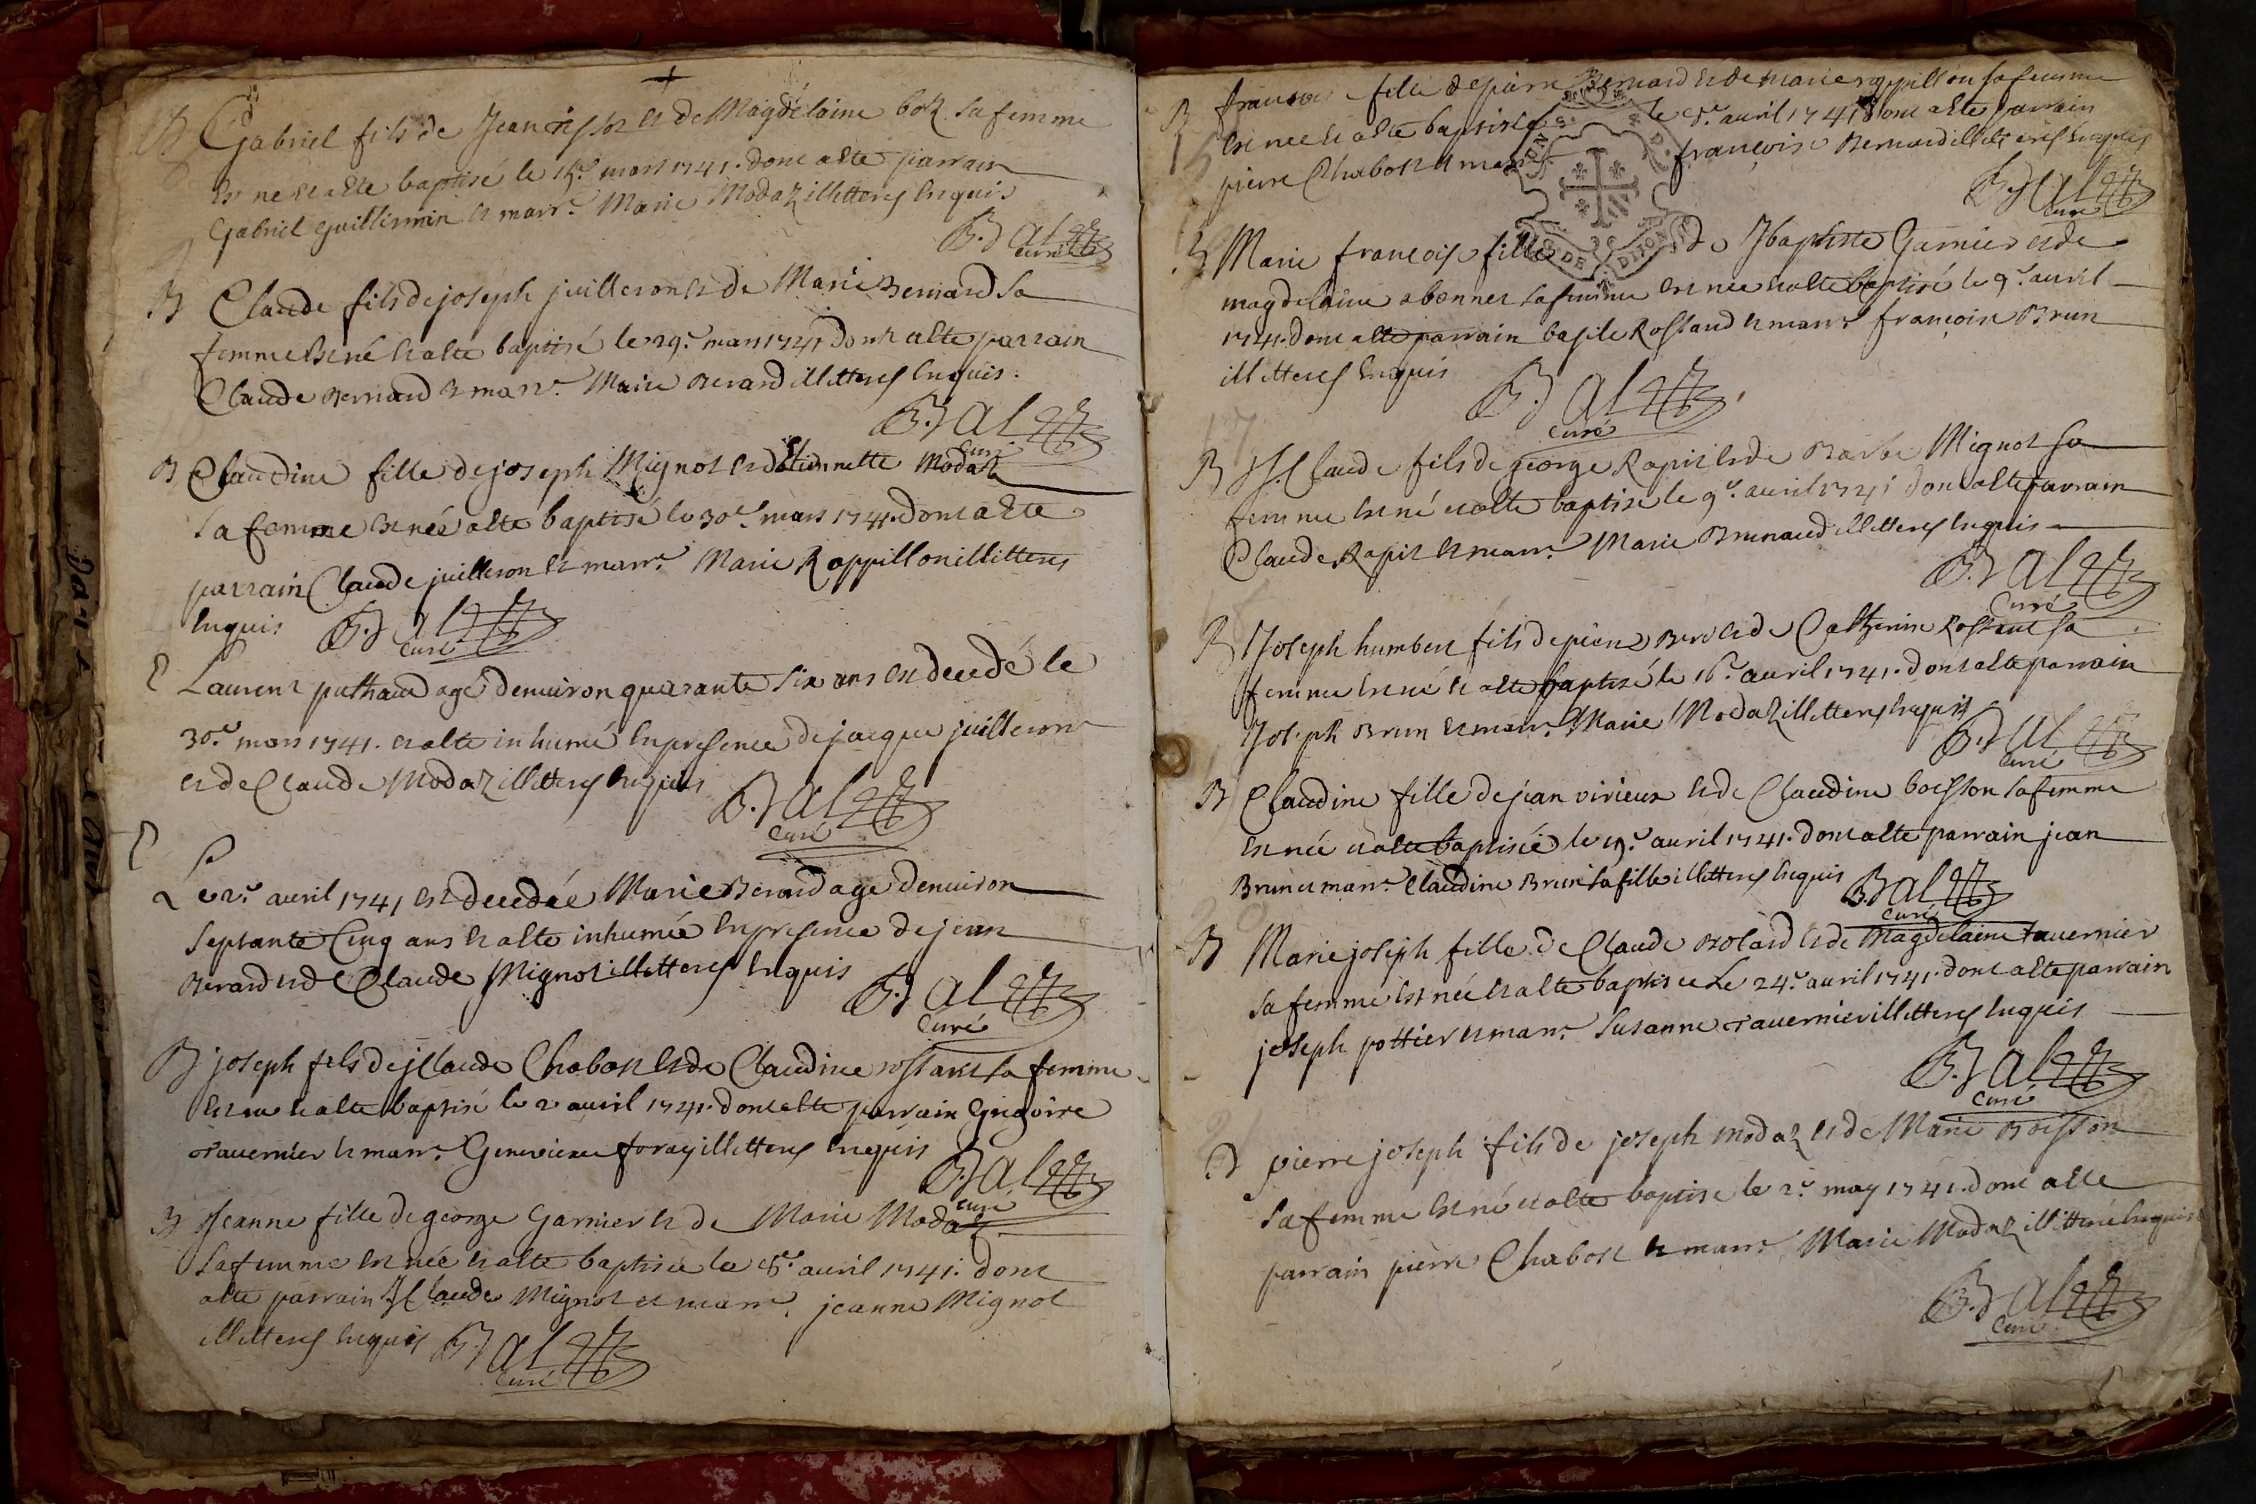 B Gabriel fils de Jean et de Magdelaine sa femme
est né et a été baptisé le mars 1741. dont a été parrain
Gabriel guillermin et marr.e Marie Modaz illitterés enquis.
B. Dal
curé
B Claude fils de joseph juilleron et de Marie Bernard sa
femme est né et a été baptisé le 29.e mars 1741 dont a été parrain
Claude Bernard et marr.e Marie Berard illitterés enquis.
B. Dal
curé
B Claudine fille de joseph Mignot et d'étiennette Modaz
sa femme est née a été baptisé le 30.e mars 1741. dont a été
parrain Claude juilleron et marr.e Marie Rappillon illitterés
enquis B. Dal
curé
Laurent puthaud agé d'environ quarante six ans est decedé le
30.e mars 1741. et a été inhumé en presence de jacque juilleron
et de Claude Modaz illitterés enquis B. Dal
curé
Le 2.e avril 1741 est decedée Marie Berard age d'environ
septante Cinq ans et a été inhumée en presence de jean
Berard et de Claude Mignot illitterés enquis B. Dal
curé
B joseph fils de jClaude Chabot et de Claudine rostant sa femme
est né et a été baptisé le 2 avril 1741. dont a été parrain Grigoire
Tavernier et marr.e Genevieve foray illitterés enquis B. Dal
curé
B Jeanne fille de george Garnier et de Marie Modaz
sa femme est née et a été baptisée le avril 1741. dont
a été parrain JClaude Mignot et marr.e jeanne Mignot
illitterés enquis B. Dal
curé
B fille de pierre Bernard et de marie rappillon sa femme
est née et a été baptisée le avril 1741 dont a été parrain
pierre Chabot et marr françoise Bernard illitterés enquis
B. Dal
curé
B Marie françoise fille de Jbaptiste Garnier et de
magdelaine abonnet sa femme est née et a été baptisé le 9.e avril
1741. dont a été parrain basile Rostand et marr.e françoise Brun
illitterés enquis B. Dal
curé
B JClaude fils de george Rapit et de Barbe Mignot sa
femme est né et a été baptisé le 9.e avril 1741 dont a été parrain
Claude Rapit et marr.e Marie Brunaud illitterés enquis
B. Dal
curé
B Joseph humbert fils de pierre et de Catherine Rostant sa
femme est né et a été baptisé le 16.e avril 1741. dont a été parrain
Joseph Brun et marr.e Marie Modaz illitterés enquis
B. Dal
curé
B Claudine fille de jean virieux et de Claudine boisson sa femme
est née et a été baptisée le 19.e avril 1741. dont a été parrain jean
Brun et marr.e Claudine Brun sa fille illitterés enquis B. Dal
curé
B Marie joseph fille de Claude Bolard et de Magdelaine tavernier
sa femme est née et a été baptisée Le 24.e avril 1741. dont a été parrain
joseph pottier et marr.e Susanne Tavernier illitterés enquis
B. Dal
curé
B pierre joseph fils de joseph modaz et de Marie Boisson
sa femme est né et a été baptisé le 2.e may 1741. dont a été
parrain pierre Chabot et marr.e Marie Modaz illitterés enquis
B. Dal
curé